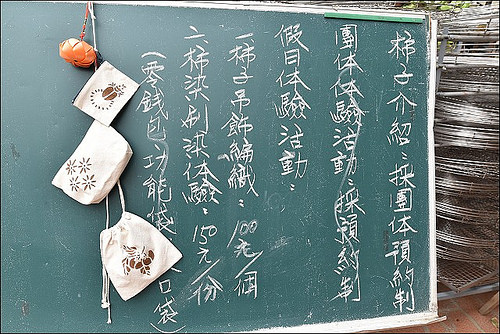 柿子介紹：採團體預約制
團体体驗活動：採預約制
假日体驗活動：
一柿子吊飾編織：100元/個
二柿染刮染体驗：150元/份
(零錢包、功能袋、口袋)